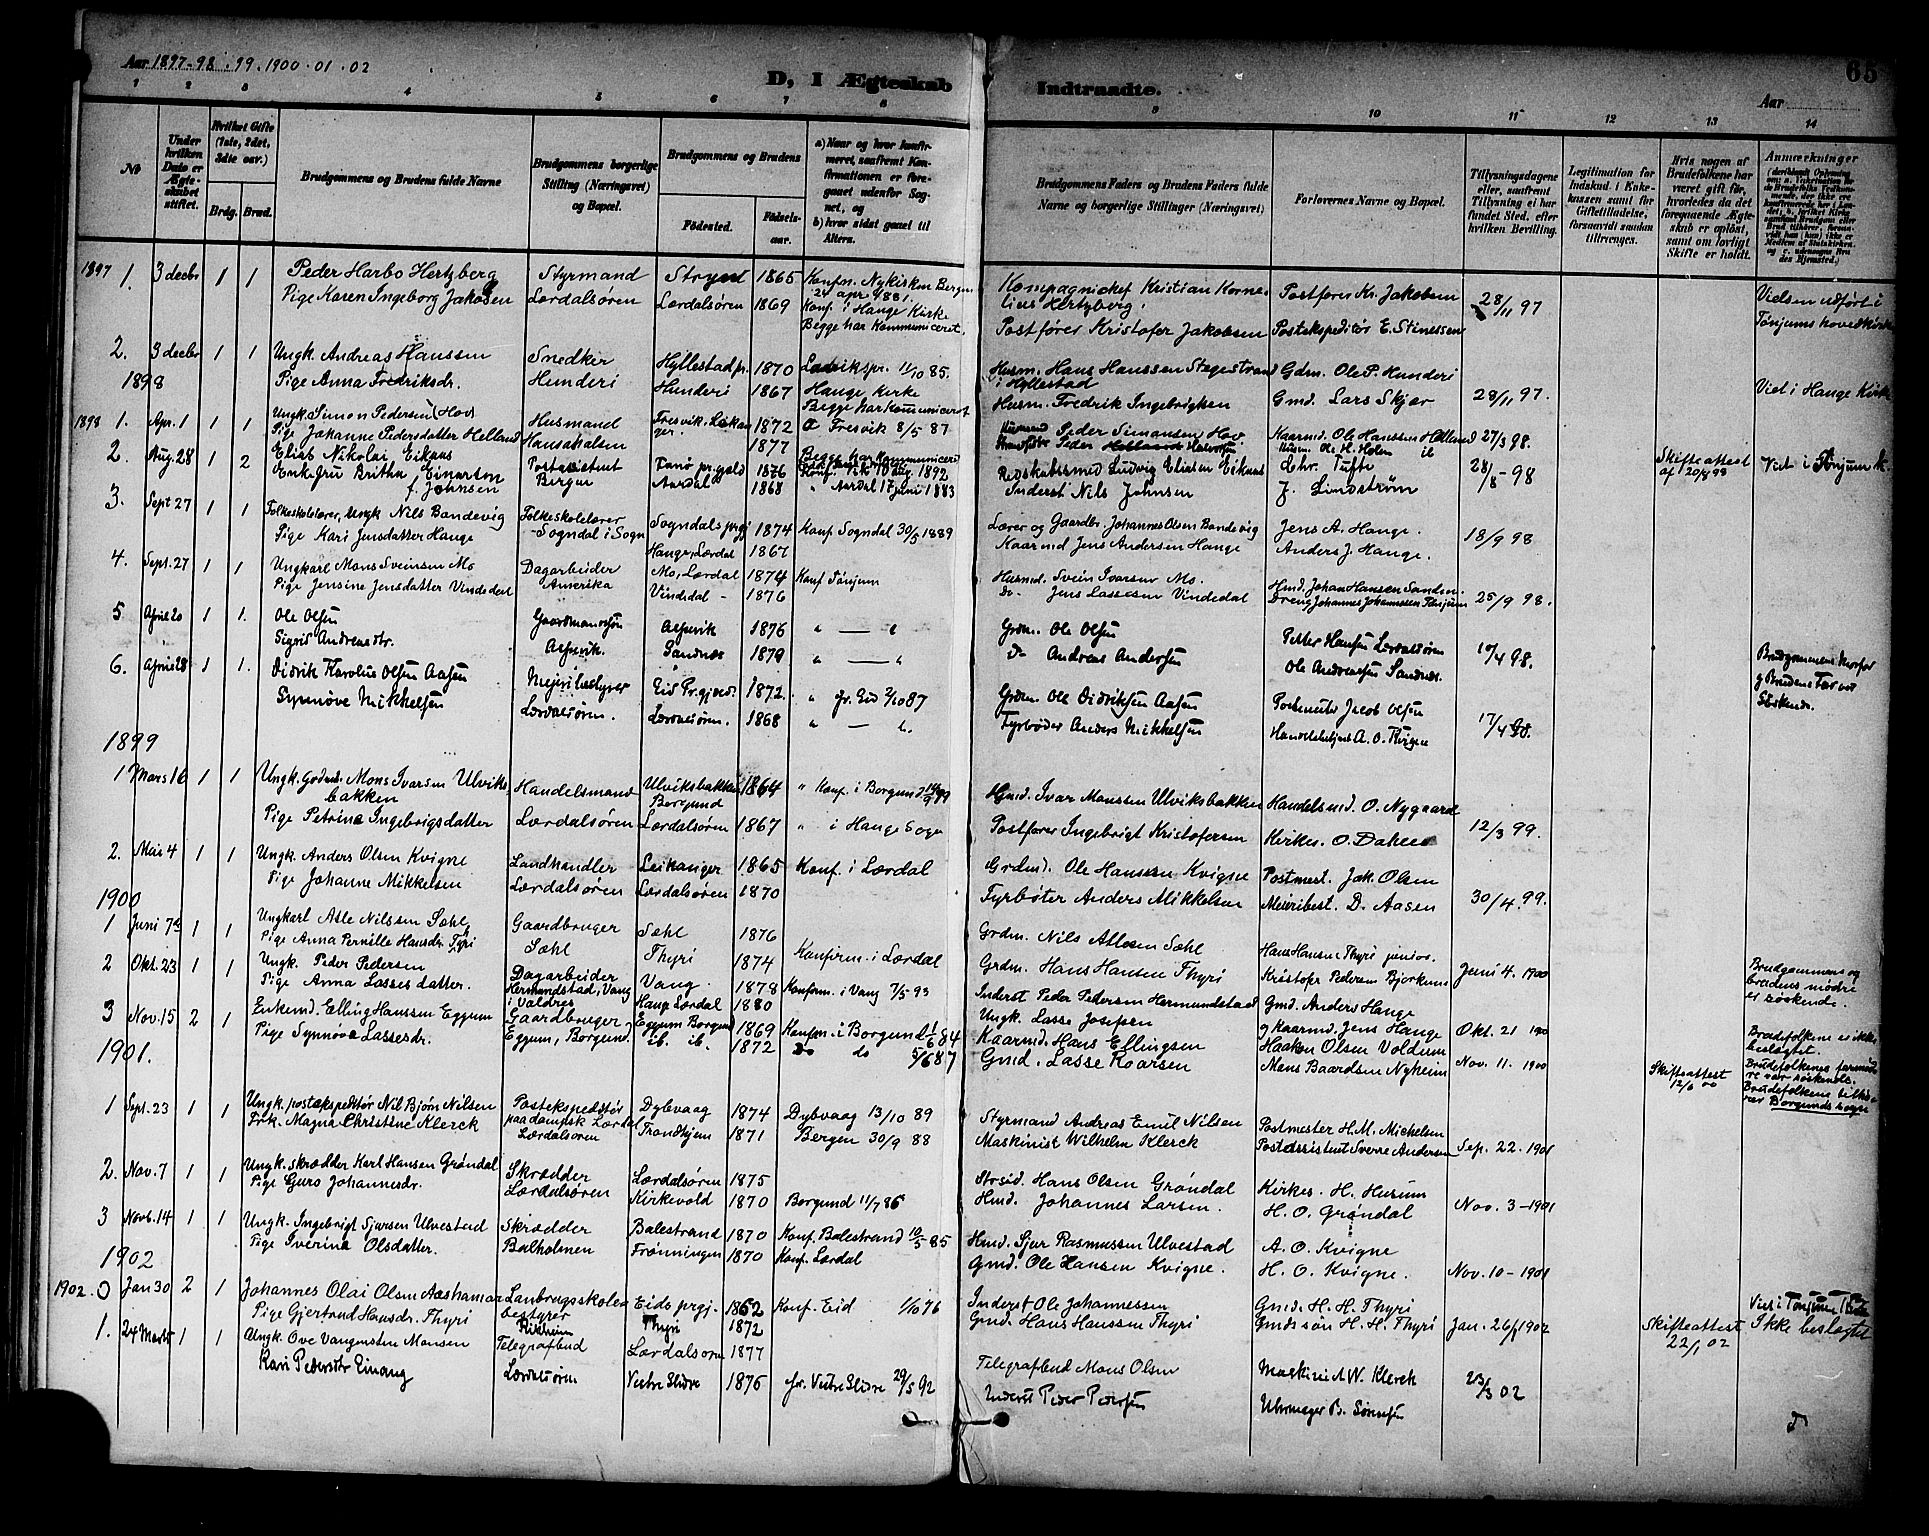 Aar 1897-98. 99. 1900. 01. 02
D, I Ægteskab Indtraadte.
65
Aar
1 2 3 4 5 6 7 8 9 10 11 12 13 14
No
Under hvilken Dato er Ægteskabet stiftet.
Hvilket Gifte (1ste, 2det, 3die osv.)
Brdg. Brud.
Brudgommens og Brudens fulde Navne
Brudgommens borgerlige Stilling (Næringsvei) og Bopæl.
Brudgommens og Brudens
Fødested. Fødselsaar.
a) Naar og hvor konfirmeret, saafremt Konfirmationen er foregaaet udenfor Sognet, og
b) hvor sidst gaaet til Alters.
Brudgommens Faders og Brudens Faders fulde Navne og borgerlige Stillinger (Næringsvei)
Forlovernes Navne og Bopæl.
Tillysningsdagene eller, saafremt Tillysning ei har fundet Sted, efter hvilken Bevilling.
Legitimation for Indskud i Enkekassen samt for Giftetilladelse, forsaavidt saadan tiltrænges.
Hvis nogen af Brudefolkene har været gift før, hvorledes da det foregaaende Ægteskab er opløst, samt om lovligt Skifte er holdt.
Anmærkninger
1897 1. 3 decbr 1 1 Peder Harbo Hertzberg Styrmand Stryn 1865 Konfn. Nykirken Bergen 24 apr 1881. Kompagnichef Kristian Kornelius Hertzberg. Postfører Kr. Jakobsen 28/11 97 Vielsen udført i
Pige Karen Ingeborg Jakobsen Lærdalsøren Lærdalsøren 1869 Konf. i Hauge Kirke Begge har Kommuniceret. Postfører Kristofer Jakobsen Postekspeditør E. Stinessen Tønjums hovedkirke
2. 3 decbr 1 1 Ungk. Andreas Hanssen Snedker Hyllestad pr. 1870 Ladvikspr. 11/10 85. Husm. Hans Hanssen Stagestrand i Hyllestad Gdm. Ole P. Hunderi
Pige Anna Fredriksdr. Hunderi Hunderi 1867 Hauge Kirke Begge har kommuniceret Husm. Fredrik Ingebrigtsen Gmd. Lars Skjær 28/11 97. Viet i Hauge Kirke
1898
1898 1. Apr. 1 1 1 Ungk. Simon Pedersen (Hov) Husmand Fresvik, Leikanger 1872 Fresvik 8/5 87 Husmand Peder Simonsen Hov Kaarmd. Ole Hanssen Helland 27/3 98.
Pige Johanne Pedersdatter Helland 1877 Begge har kommuniceret Peder Husm. Ole H. Holen
2. Aug. 28 1 2 Elias Nikolai Eiknes Postassistent Fanø pr.gjeld 1876 1892 Redskabssmed Ludvig Eliasen Eiknes Chr. Tufte 28/8 - 98 Skifteattest af 20/8 98 Viet i Tønjum K.
Enkefru Britha Einarson f. Johnsen Bergen Aardal 1868 " Aardal 17 juni 1883 Inderst Nils Johnsen J. Lindstrøm
3. Sept 27 1 1 Folkeskolelærer, Ungk Nils Bondevig Folkeskolelærer Sogndals prgj 1874 Konf. Sogndal 30/5 1889 Lærer og Gaardbr. Johannes Olsen Bondevig Jens A. Hauge.
Pige Kari Jensdatter Hauge - Sogndal i Sogn Hauge, Lærdal 1867 Kaarmd Jens Andersen Hauge Anders J. Hauge. 18/9 98
4. Sept. 27 1 1 Ungkarl Mons Sveinsen Mo Dagarbeider Mo, Lærdal 1874 Konf Tønjum Husmd. Svein Ivarsen Mo. Hmd. Johan Hansen Sanden.
Pige Jensine Jensdatter Vindedal Amerika Vindedal - 1876 do- Jens Lassesen Vindedal Dreng Johannes Johannessen Tønjum 25/9 98.
5 April 20 1 1. Ole Olsen Gaardmandssøn Aspevik 1876 " — " Grdm. Ole Olsen Petter Hansen Lærdalsøren 17/4 98.
Sigrid Andreasdtr. Aspevik. Sandnæs 1879 " — " do Andreas Andersen Ole Andreassen Sandnæs.
6. April 28 1 1. Didrik Karolus Olsen Aasen Meieribestyrer Eid Pr.gjeld. 1872. " fr. Eid 2/10 87 Grdm. Ole Didriksen Aasen Postmester Jacob Olsen 17/4 98. Brudgommens Morfar og Brudens Far var Søskende.
Synnøve Mikkelsen Lærdalsøren. Lærdalsøren. 1868 " — ". Fyrbøder Anders Mikkelsen Handelsbetjent A. O. Kvigne
1899
1 Mars 16 1 1 Ungk. Mons Ivarsen Ulviksbakken Handelsmand Ulviksbakken Borgund 1864 " Konf. i Borgund Gmd. Ivar Monssen Ulviksbakken Handelsmd. O. Nygaard
Pige Petrine Ingebrigsdatter Lærdalsøren Lærdalsøren 1867 " i Hauge Sogn Postfører Ingebrigt Kristofersen Kirkes. O. Dahle 12/3 99.
2. Mai 4 1 1 Ungk. Anders Olsen Kvigne Landhandler Leikanger 1865 Konf. i Lærdal Grdmd. Ole Hanssen Kvigne Postmest. Jak. Olsen
Pige Johanne Mikkelsen Lærdalsøren Lærdalsøren 1870 Fyrbøter Anders Mikkelsen Meieribest. D. Aasen 30/4. 99.
1900
1 Juni 7de 1 1 Ungkarl Atle Nilssen Sæhl Gaardbruger Sæhl 1876 Grdm. Nils Atlesen Sæhl Hans Hansen Thyri junior.
Pige Anna Pernille Hansdr. Tyri Sæhl Thyri 1874 Konfirm. i Lærdal Grdm. Hans Hansen Thyri Kristofer Pedersen Bjørkum Juni 4. 1900
2 Okt. 23 1 1 Ungk. Peder Pedersen Dagarbeider Hermundstad, Vang i Valdres Vang. 1878 Konform. i Vang 7/5 93 Inderst Peder Pedersen Hermundstad Gmd. Anders Hauge Brudgommens og brudens mødre er søskende.
Pige Anna Lassesdatter. Haug Lærdal 1880 Ungk. Lasse Josefsen og Kaarmd. Jens Hauge Okt. 21 1900
3 Nov. 15 2 1 Enkemd. Elling Hanssen Eggum Gaardbruger Eggum Borgund 1869 Konfm. i Borgund d 1/6 84 Kaarmd. Hans Ellingsen Haaken Olsen Voldum Brudefolkene er ikke beslægtet.
Pige Synnøve Lassesdr. Eggum, Borgund. ib. ib. 1872 Do do 5/6 87 Gmd. Lasse Roarsen Mons Baardsen Nyheim Nov. 11. 1900 Skifteattest 12/6 00 Brudefolkenes farmødre var søskende. Brudefolkene tilhører Borgunds sogn
1901.
1 Sept. 23 1 1 Ungk. postekspeditør Nil Bjørn Nilsen Postekspeditør paa dampsk. Lærdal Dybvaag 1874 Dybvaag 13/10 89 Styrmand Andreas Emil Nilsen Postmester H. M. Michelsen
Frk. Magna Christine Klerck Lærdalsøren Trondhjem 1871 Bergen 30/9 88 Maskinist Wilhelm Klerck Postassistent Sverre Andersen Sep. 22. 1901
2. Nov. 7 1 1 Ungk. skrædder Karl Hansen Grøndal Skrædder Lærdalsøren 1875 Strsid. Hans Olsen Grøndal Kirkes. H. Husum
Pige Guro Johannesdr. Lærdalsøren Kirkevold 1870 Borgund 11/7 86 Hmd. Johannes Larsen. H. O. Grøndal Nov. 3 - 1901
3 Novb. 14 1 1 Ungk. Ingebrigt Sjursen Ulvestad Skrædder Balestrand 1870 Konf. Balestrand 10/5 85 Hmd. Sjur Rasmussen Ulvestad A. O. Kvigne
Pige Iverina Olsdatter. Balholmen Frønningen 1870 Konf. Lærdal Gmd. Ole Hansen Kvigne. H. O. Kvigne. Nov. 10 - 1901
1902
1902. 0 Jan 30 2 1 Johannes Olai Olsen Aashamar Lanbrugsskolebestyrer Eids prgj. 1862 Konf. Eid 1/10 76 Inderst Ole Johannessen Gmd. H. H. Thyri Viet i Tønjum Kirke
Pige Gjertrud Hansdr. Thyri Rikheim Thyri 1872 Gmd. Hans Hanssen Thyri Gmds søn H. H. Thyri Jan. 26/1 1902 Skifteattest 22/1 02 Ikke beslægtet
1. 24 Marts 1 1 Ungk. Ove Vangensten Monsen Telegrafbud Lærdalsøren 1877 Telegrafbud Mons Olsen Maskinist W. Klerck 23/3 02
Kari Pedersdtr Einang Lærdalsøren Vestre Slidre 1876 fr. Vestre Slidre 29/5 92 Inderst Peder Pedersen Uhrmager B. Sørensen